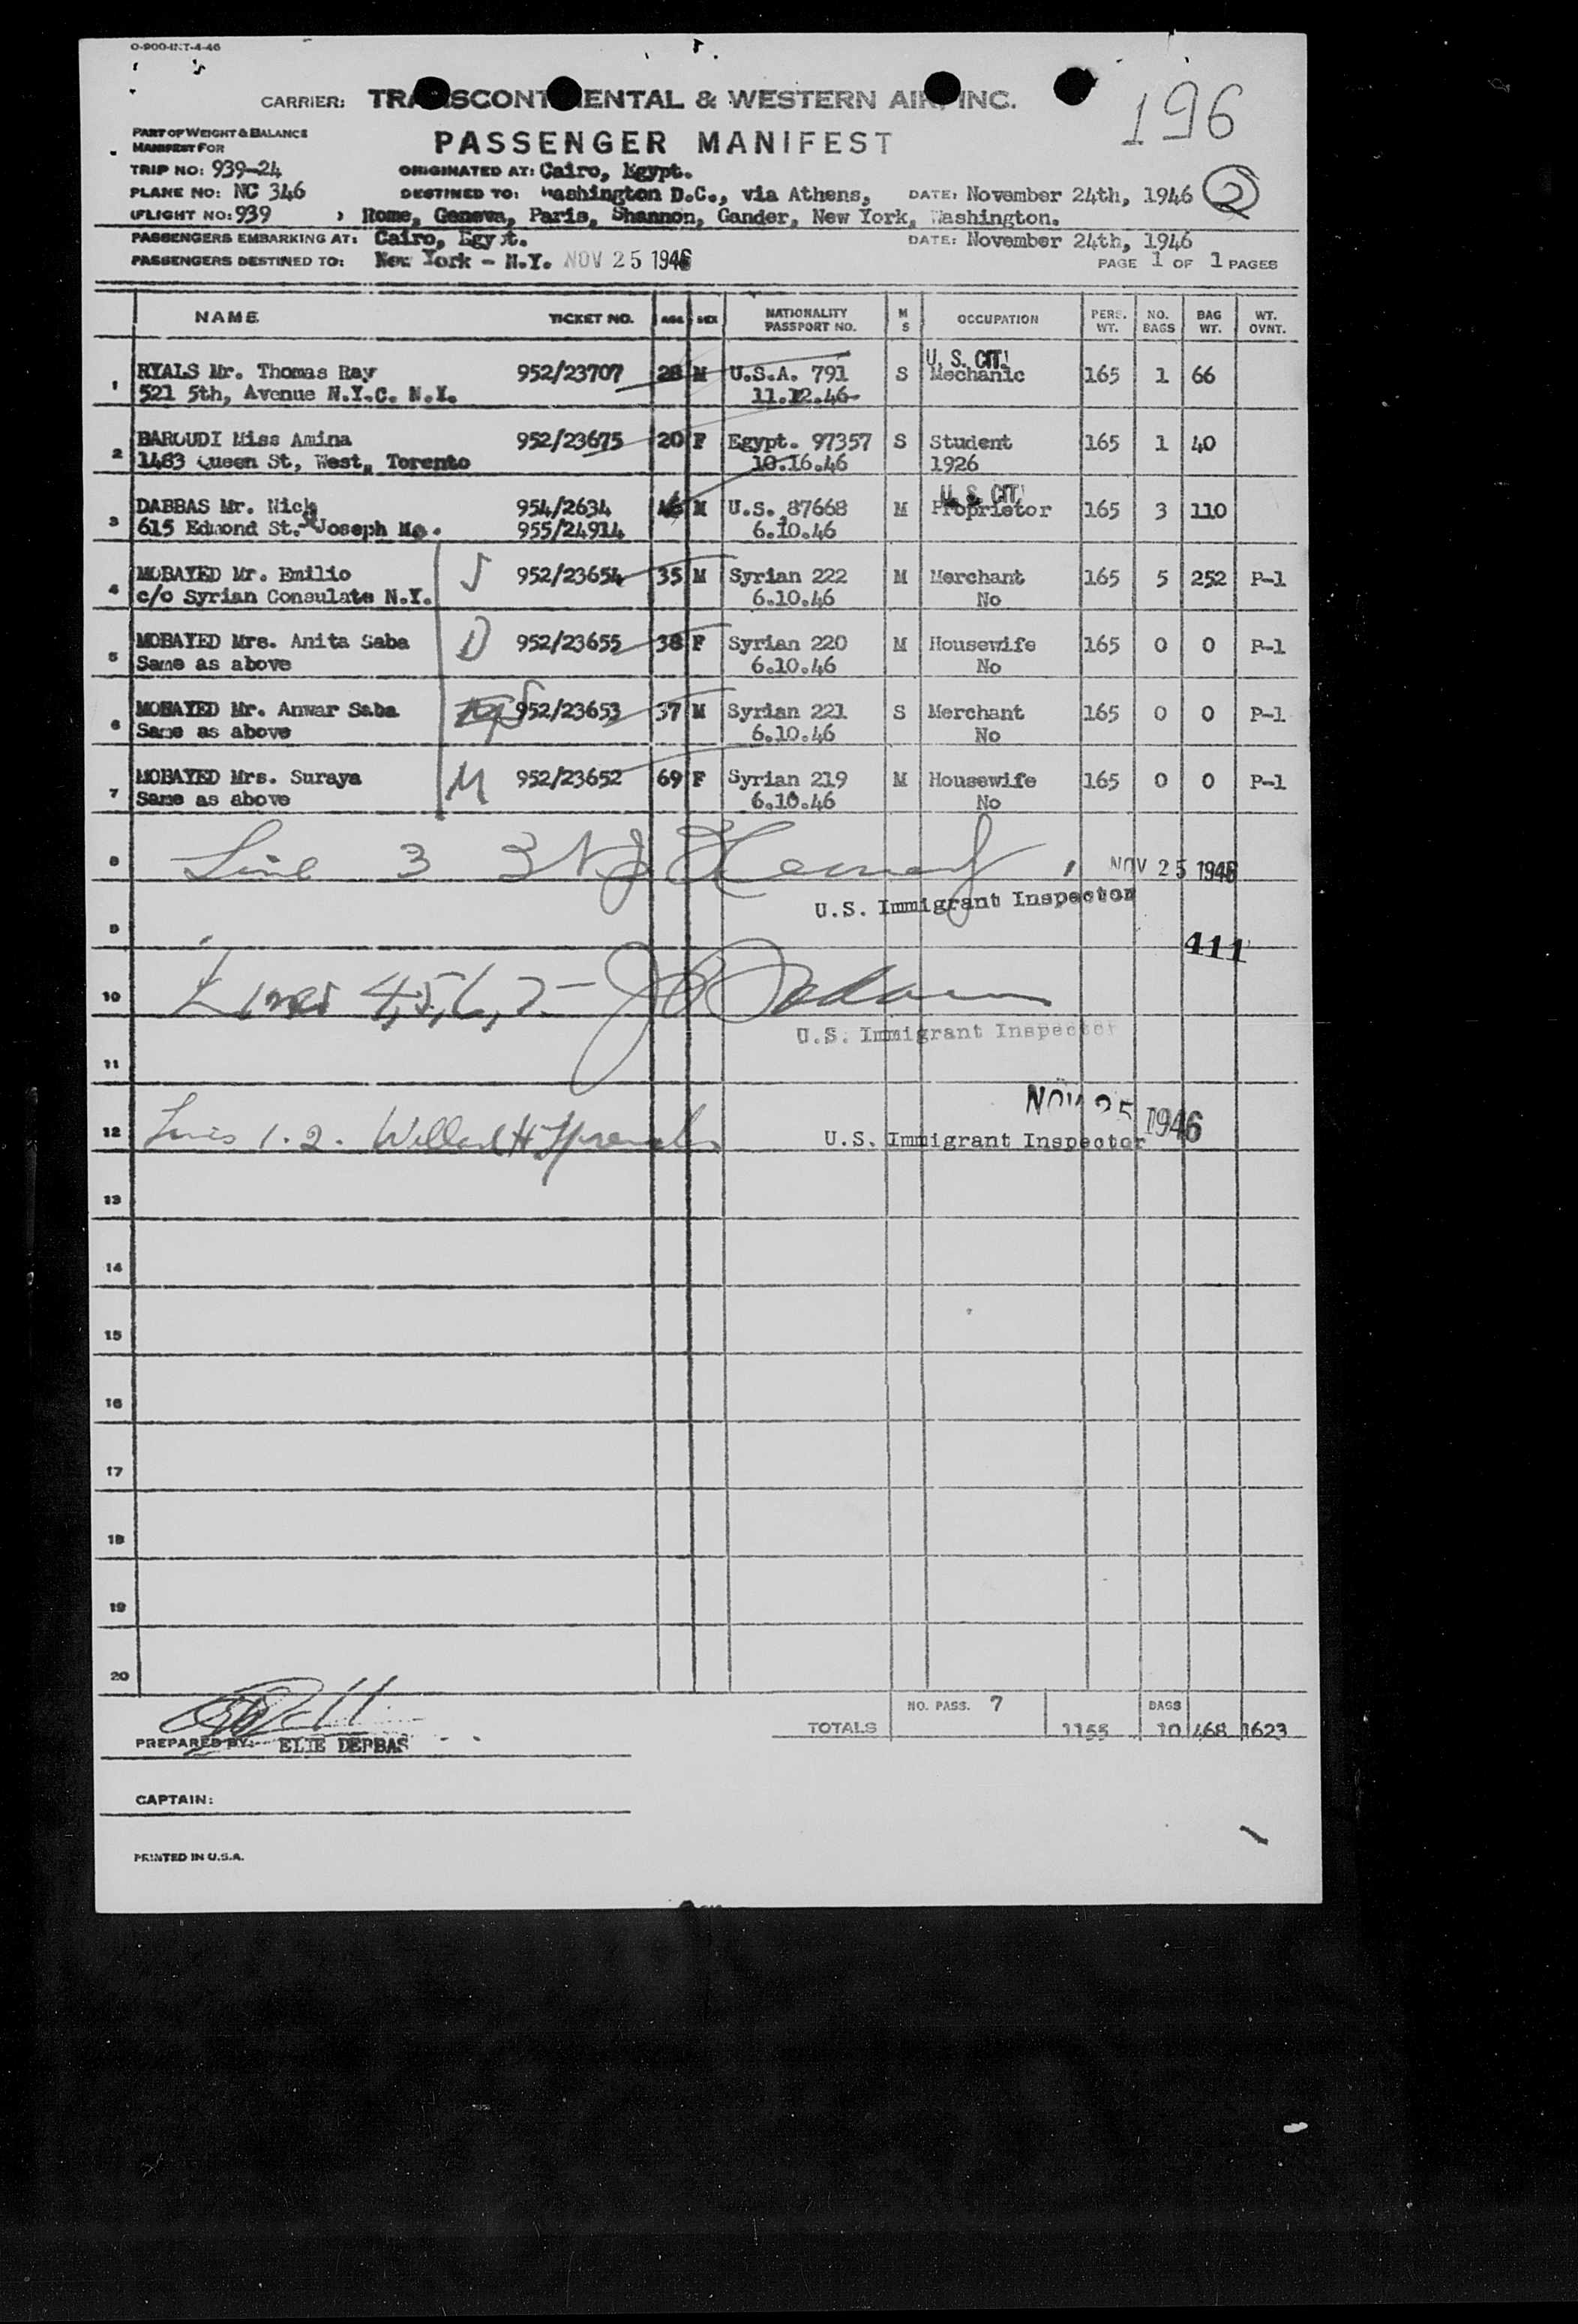 O-900-INT-4-46
CARRIER: TRANSCONTINENTAL & WESTERN AIR, INC.
196
PART OF WEIGHT & BALANCE
MANIFEST FOR
PASSENGER MANIFEST
TRIP NO: 939-24 ORIGINATED AT: Cairo, Egypt.
PLANE NO: NC 346 DESTINED TO: Washington D.C., via Athens, DATE: November 24th, 1946 2
FLIGHT NO: 939 , Rome, Geneva, Paris, Shannon, Gander, New York, Washington.
PASSENGERS EMBARKING AT: Cairo, Egypt. DATE: November 24th, 1946
PASSENGERS DESTINED TO: New York - N.Y. NOV 25 1946 PAGE 1 OF 1 PAGES
NAME TICKET NO. AGE SEX NATIONALITY PASSPORT NO. M S OCCUPATION PERS. WT. NO. BAGS BAG WT. WT. OVNT.
U. S. CIT.
1 RYALS Mr. Thomas Ray 952/23707 28 M U.S.A. 791 S Mechanic 165 1 66
521 5th, Avenue N.Y.C. N.Y. 11.12.46
2 BAROUDI Miss Amina 952/23675 20 F Egypt. 97357 S Student 165 1 40
1483 Queen St, West, Toronto 10.16.46 1926
U. S. CIT.
3 DABBAS Mr. Nick 954/2634 46 M U.S. 87668 M Proprietor 165 3 110
615 Edmond St. Joseph Mo. 955/24914 6.10.46
4 MOBAYED Mr. Emilio S 952/23654 35 M Syrian 222 M Merchant 165 5 252 P-1
c/o Syrian Consulate N.Y. 6.10.46 No
5 MOBAYED Mrs. Anita Saba D 952/23655 38 F Syrian 220 M Housewife 165 0 0 P-1
Same as above 6.10.46 No
6 MOBAYED Mr. Anwar Saba S 952/23653 37 M Syrian 221 S Merchant 165 0 0 P-1
Same as above 6.10.46 No
7 MOBAYED Mrs. Suraya M 952/23652 69 F Syrian 219 M Housewife 165 0 0 P-1
Same as above 6.10.46 No
8 Line 3 NOV 25 1946
U.S. Immigrant Inspector
9
411
10 Lines 4,5,6,7-
U.S. Immigrant Inspector
11
NOV 25 1946
12 Lines 1.2. U.S. Immigrant Inspector
13
14
15
16
17
18
19
20
TOTALS NO. PASS. 7 1155 BAGS 10 468 1623
PREPARED BY: ELIE DEBBAS
CAPTAIN:
PRINTED IN U.S.A.